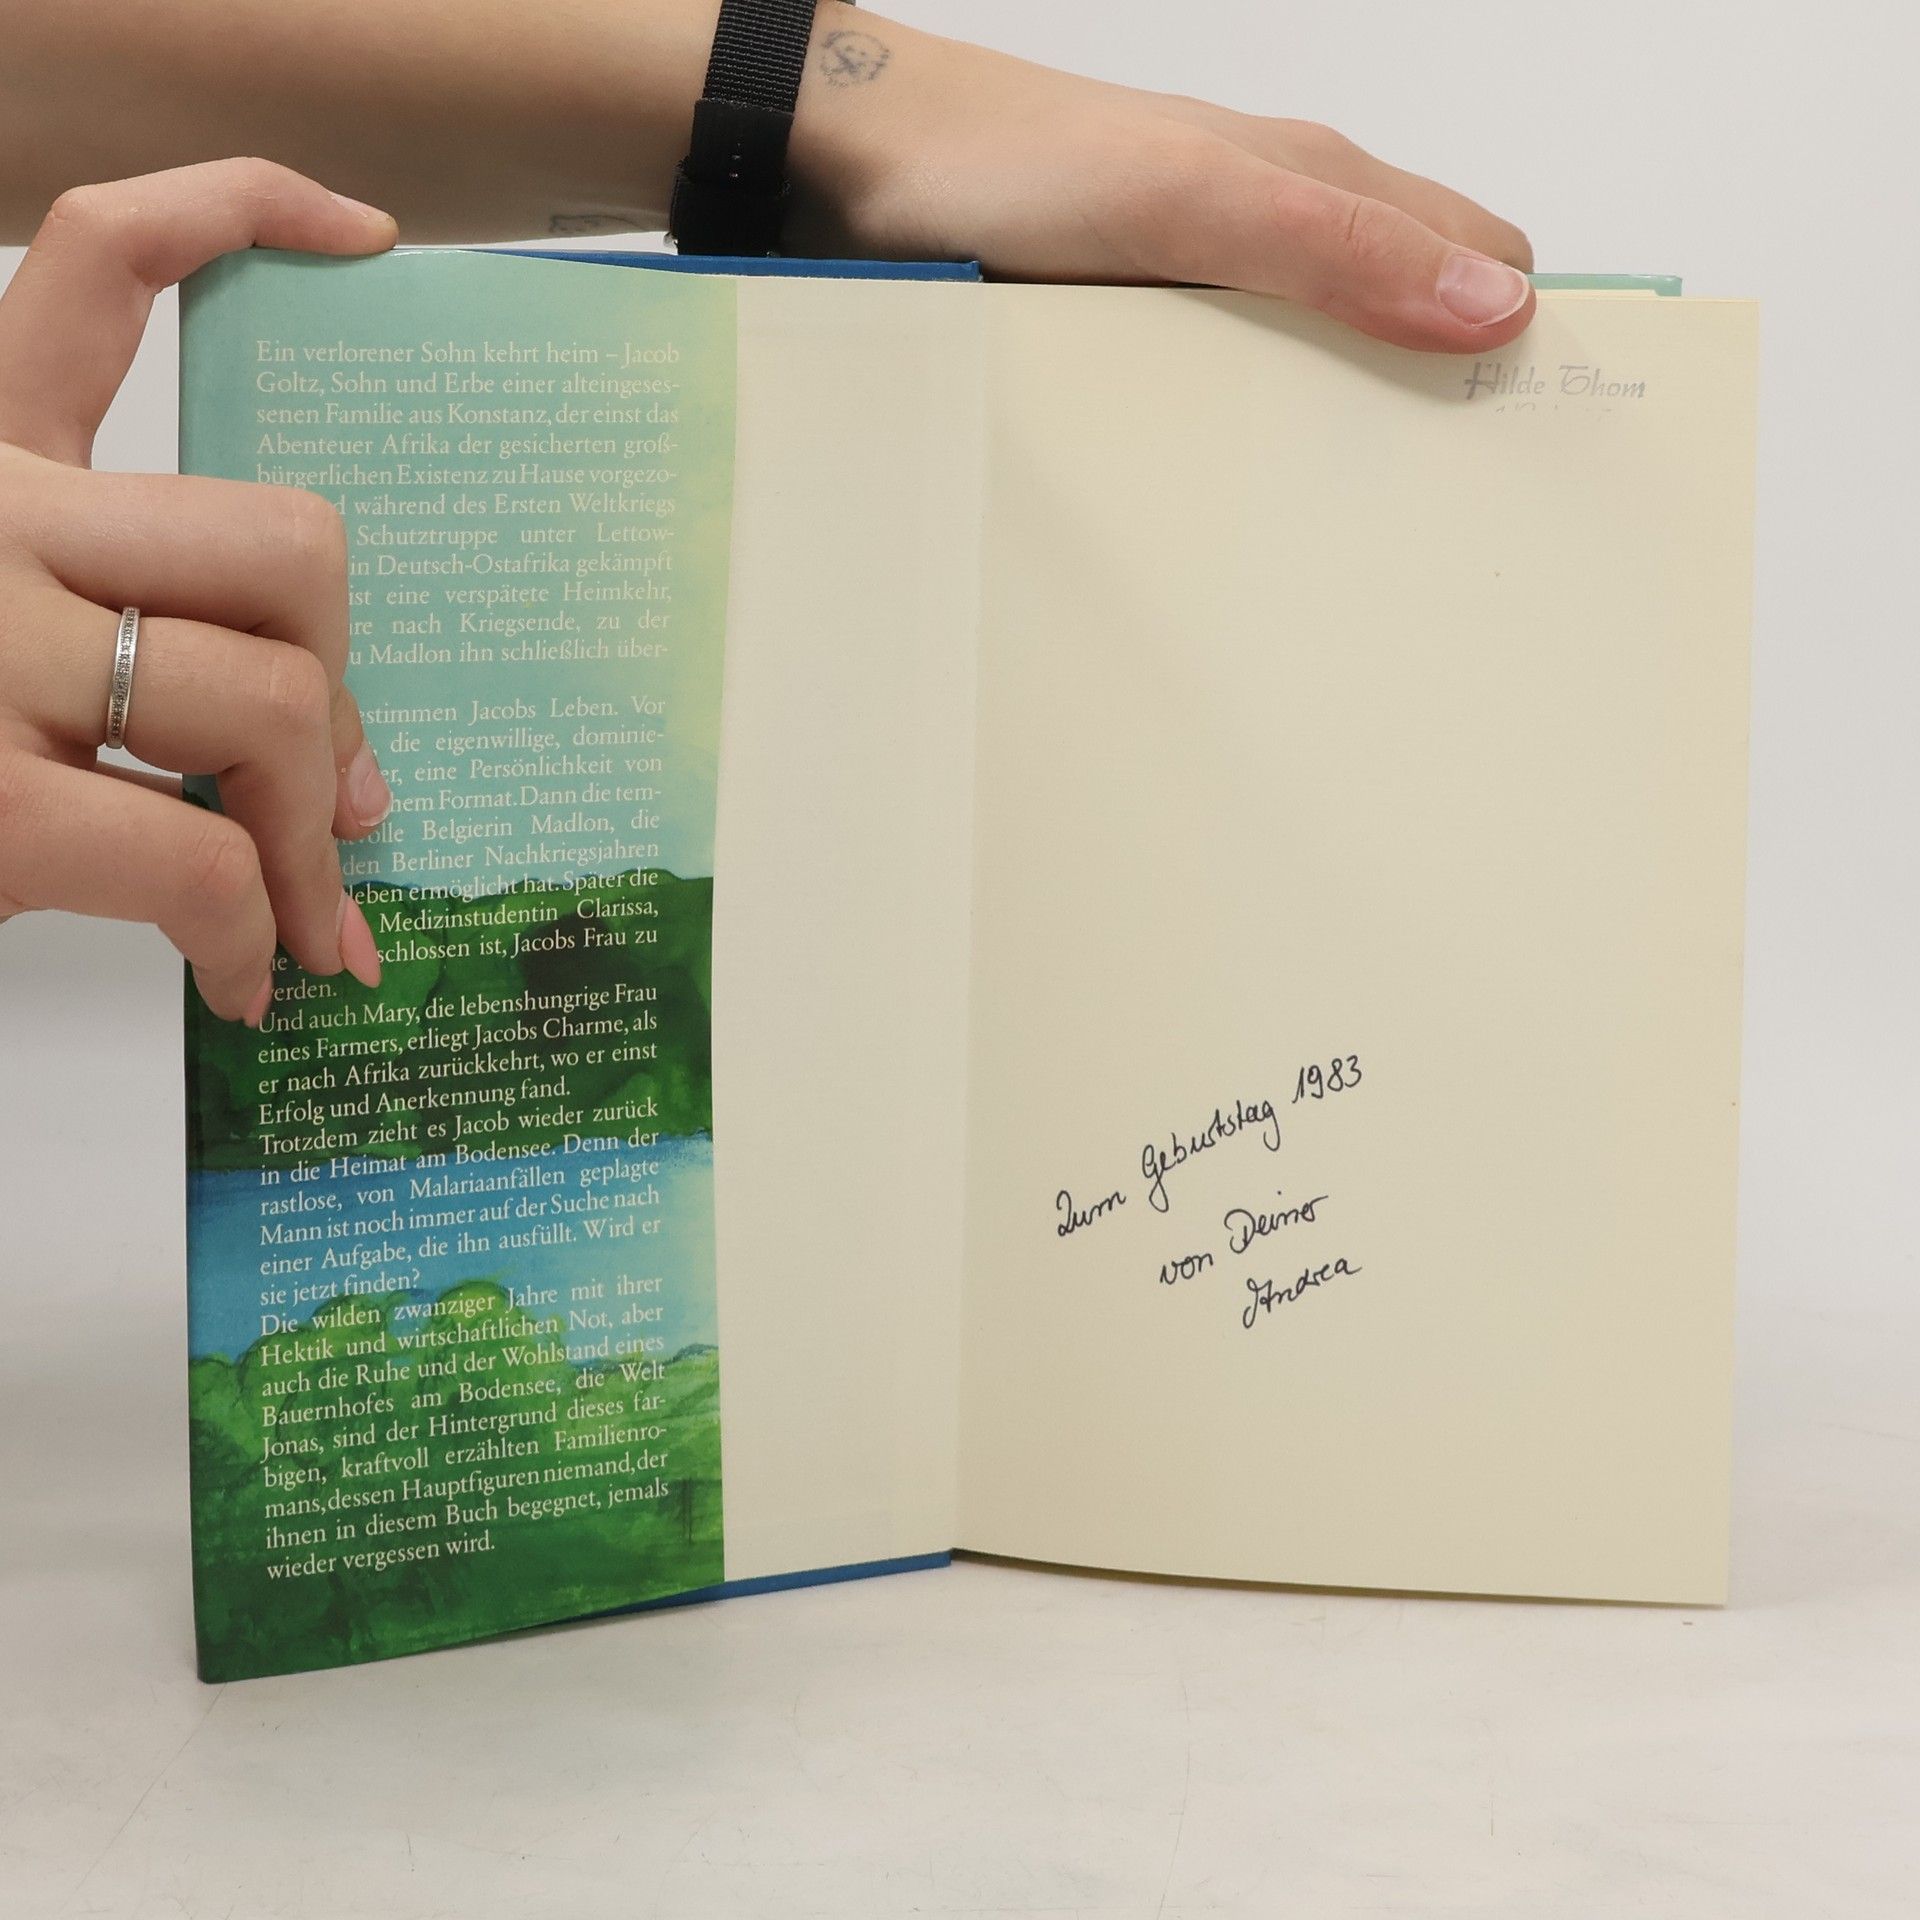 Ein verlorener Sohn kehrt heim – Jacob
Goltz, Sohn und Erbe einer alteingeses-
senen Familie aus Konstanz, der einst das
Abenteuer Afrika der gesicherten groß-
bürgerlichen Existenz zu Hause vorgezo-
während des Ersten Weltkriegs
Schutztruppe unter Lettow-
in Deutsch-Ostafrika gekämpft
ist eine verspätete Heimkehr,
nach Kriegsende, zu der
Madlon ihn schließlich über-
Jacobs Leben. Vor
die eigenwillige, dominie-
eine Persönlichkeit von
Format. Dann die tem-
Belgierin Madlon, die
den Berliner Nachkriegsjahren
ermöglicht hat. Später die
Medizinstudentin Clarissa,
ist, Jacobs Frau zu
werden.
Und auch Mary, die lebenshungrige Frau
eines Farmers, erliegt Jacobs Charme, als
er nach Afrika zurückkehrt, wo er einst
Erfolg und Anerkennung fand.
Trotzdem zieht es Jacob wieder zurück
in die Heimat am Bodensee. Denn der
rastlose, von Malariaanfällen geplagte
Mann ist noch immer auf der Suche nach
einer Aufgabe, die ihn ausfüllt. Wird er
sie jetzt finden?
Die wilden zwanziger Jahre mit ihrer
Hektik und wirtschaftlichen Not, aber
auch die Ruhe und der Wohlstand eines
Bauernhofes am Bodensee, die Welt
Jonas, sind der Hintergrund dieses far-
bigen, kraftvoll erzählten Familienro-
mans, dessen Hauptfiguren niemand, der
ihnen in diesem Buch begegnet, jemals
wieder vergessen wird.
Hilde Thom
Zum Geburtstag 1983
von Deiner
Andrea